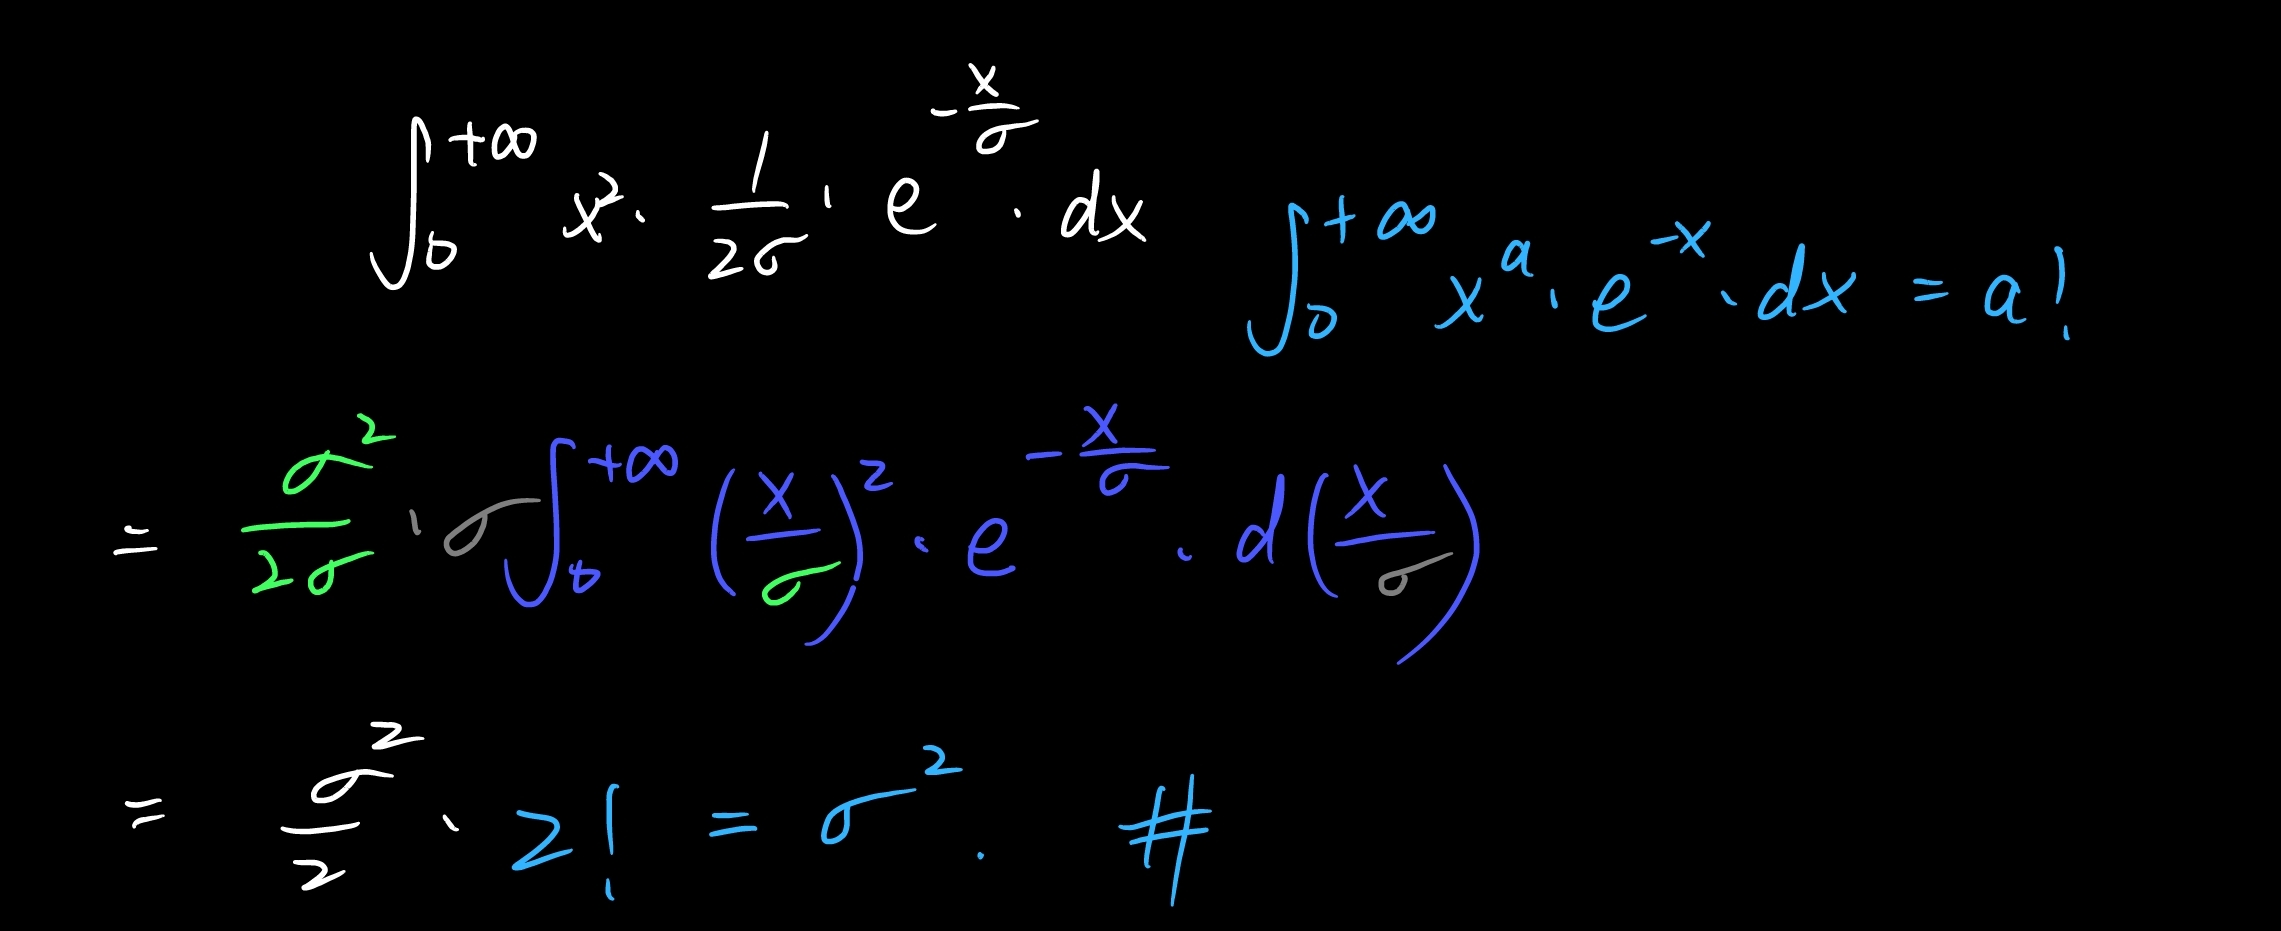 ∫₀^{+∞} x² · \frac{1}{2σ} · e^{-\frac{x}{σ}} · dx
∫₀^{+∞} x^a · e^{-x} · dx = a!
= \frac{σ²}{2σ} · σ ∫₀^{+∞} (\frac{x}{σ})² · e^{-\frac{x}{σ}} · d(\frac{x}{σ})
= \frac{σ²}{2} · 2! = σ². #